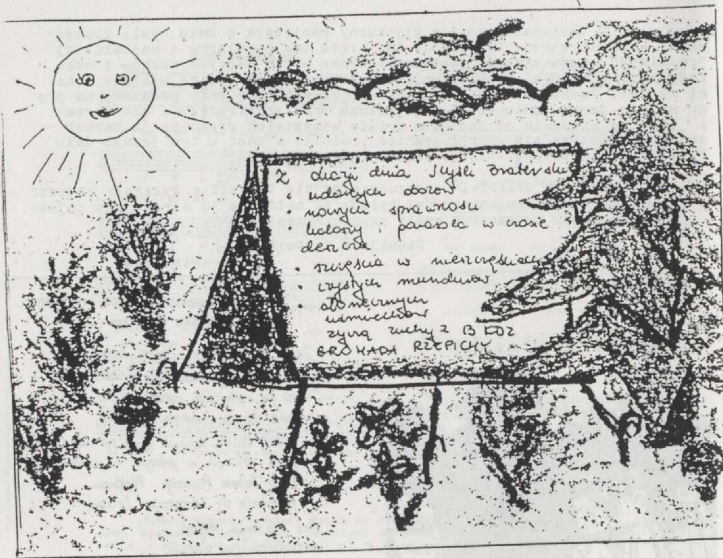 Z okazji dnia Myśli Bratersk
• udanych obozów
• nowych sprawności
kaloszy i parasola w czasie
deszczu
• szczęścia w nieszczęściu
• czystych mundurów
• słonecznych
uśmiechów
życzą zuchy z 13 ŁDZ
GROMADA RZEPICHY